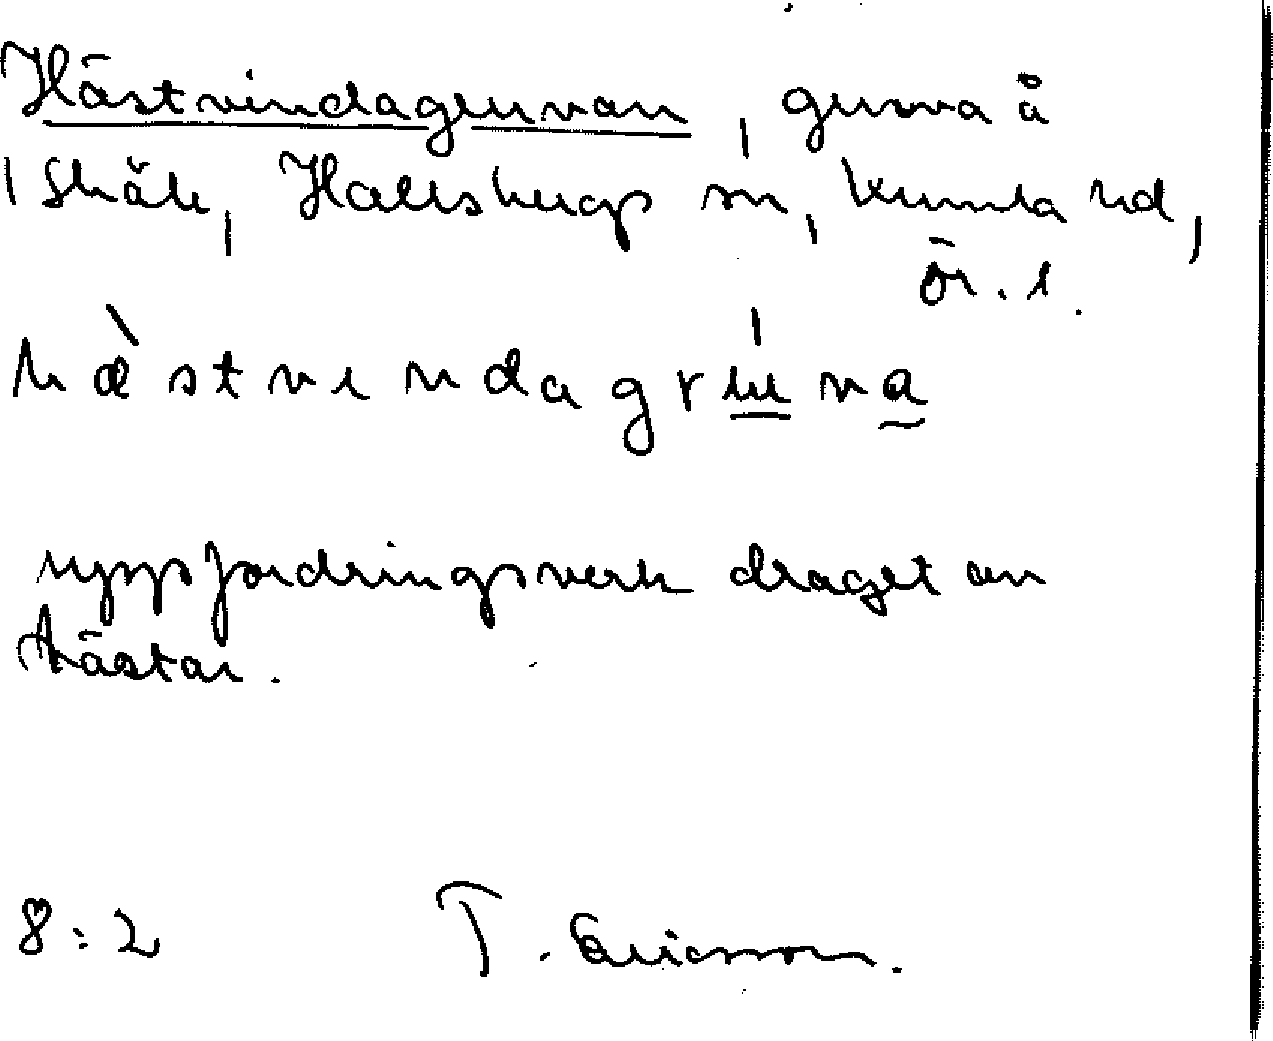 Hästvindagruvan, gruva å
Skäle, Hallsbergs sn, Kumla hd,
Ör. l.
hæ̀stvindagrúva
uppfordringsverk draget av
hästar.
8:2 T. Ericsson.